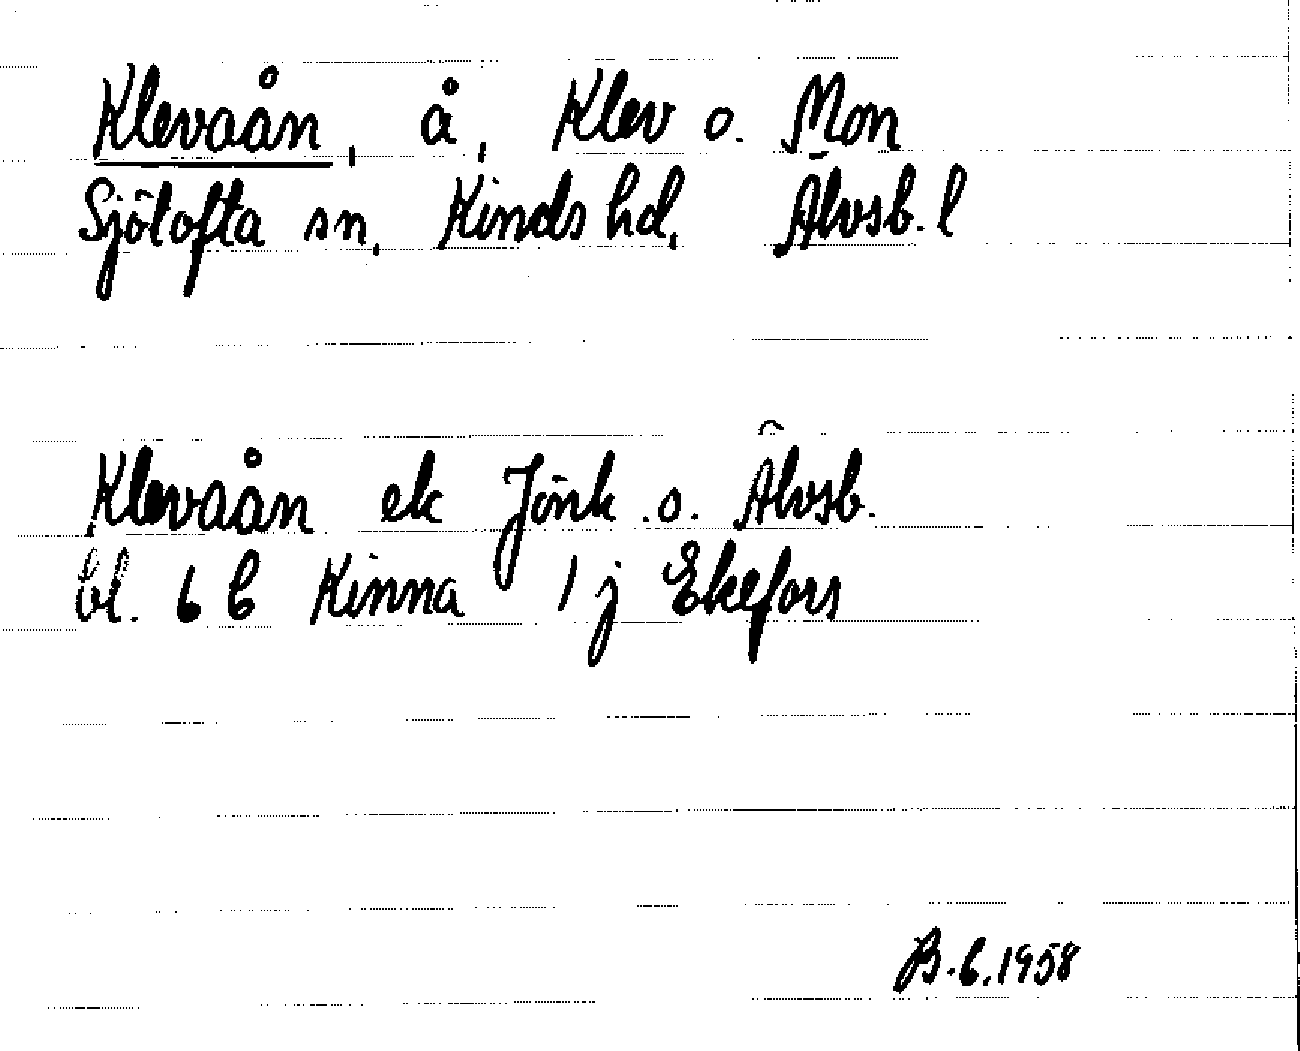 Klevaån, å, Klev o. Mon
Sjötofta sn, Kinds hd, Älvsb. l
Klevaån ek Jönk. o. Älvsb.
bl. 6 C Kinna 1 j Ekefors
B. C. 1958